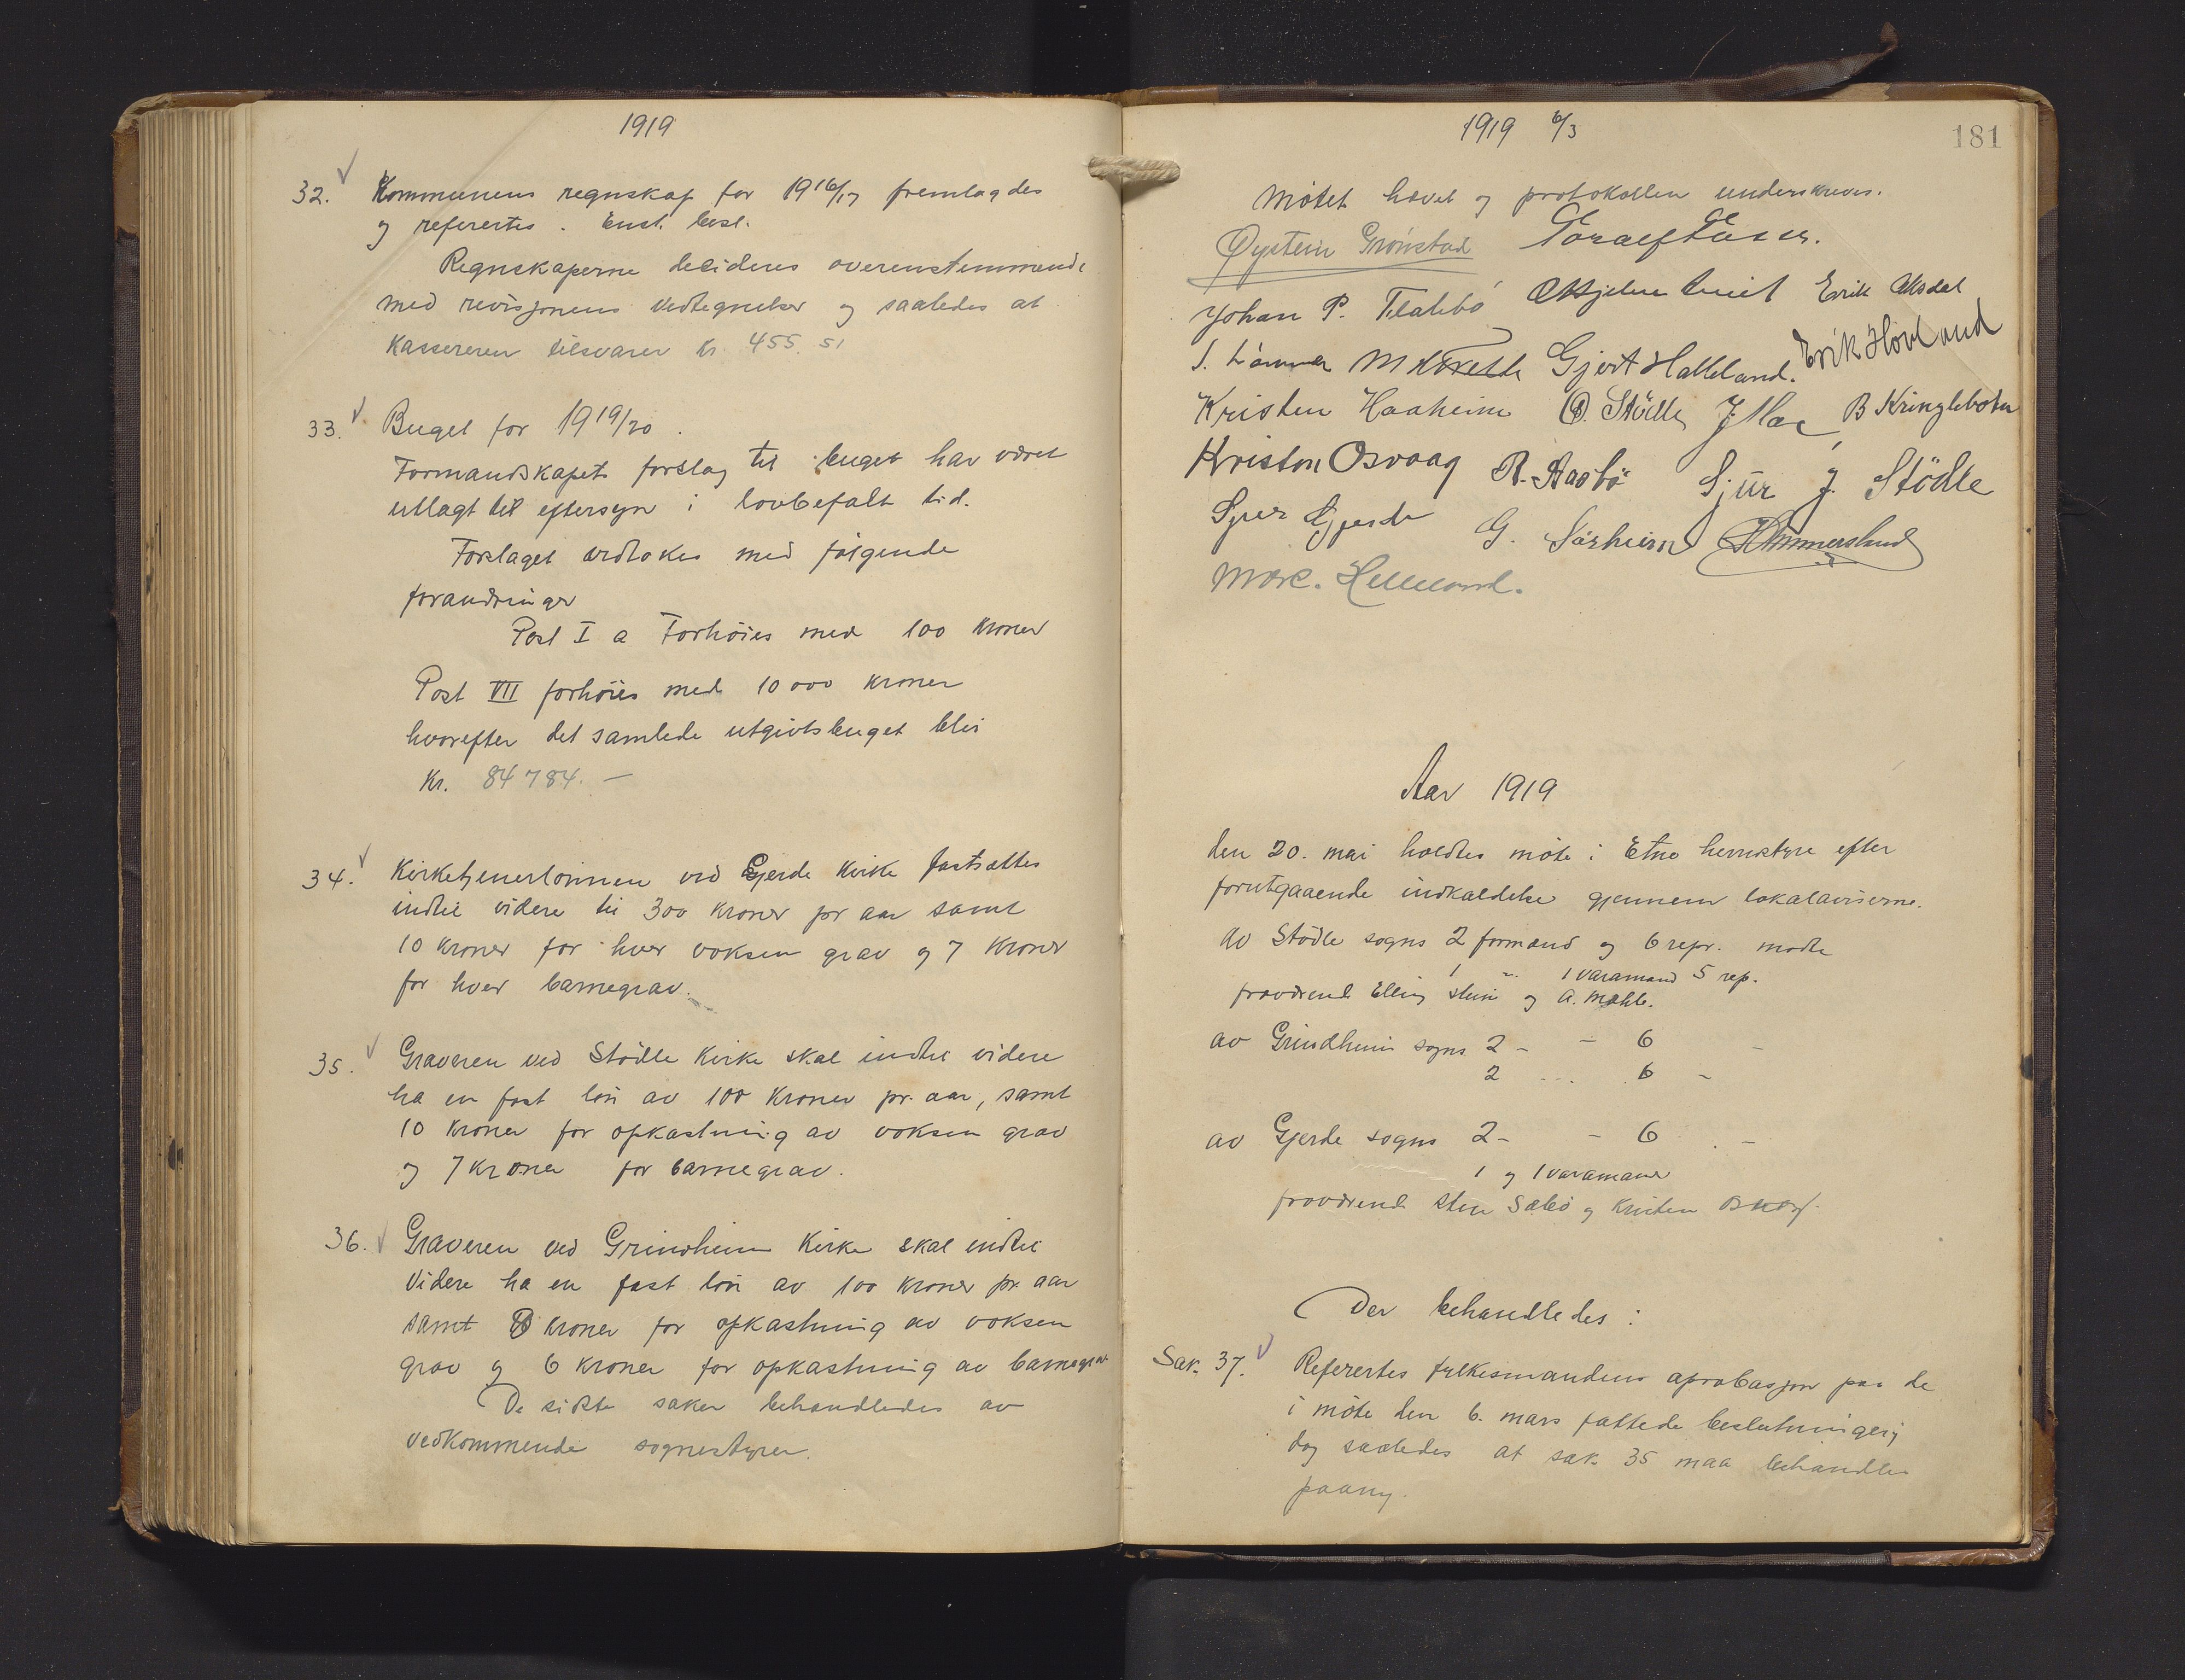 1919
32. Kommunens regnskap for 1916/17 fremlagdes
og referertes. Enst. besl.
Regnskaperne decideres overenstemmende
med revisjonens vedtegnelser og saaledes at
kassereren tilsvarer kr. 455.51
33. Buget for 1919/20.
Formandskapets forslag til buget har været
utlagt til eftersyn i lovbefalt tid.
Forslaget vedtokes med følgende
forandringer
Post I a Forhöies med 100 kroner
Post VII forhöies med 10 000 kroner
hvorefter det samlede utgivtsbuget blir
Kr. 84 784. —
34. Kirketjenerlönnen ved Gjerde kirke fastsættes
indtil videre til 300 kroner pr aar samt
10 kroner for hver voksen grav og 7 kroner
for hver barnegrav.
35. Graveren ved Stödle kirke skal indtil videre
ha en fast lön av 100 kroner pr. aar, samt
10 kroner for opkastning av voksen grav
og 7 kroner for barnegrav.
36. Graveren ved Grindheim Kirke skal indtil
videre ha en fast lön av 100 kroner pr. aar
samt 8 kroner for opkastning av voksen
grav og 6 kroner for opkastning av barnegrav
De sidste saker behandledes av
vedkommende sognestyrer.
1919 6/3
181
Mötet hævet og protokollen underskreves.
Øystein Grönstad
Johan P. Flatebö Erik Aksdal
Gjert Halleland. Erik Hövland
Kristen Haaheim O. Stödle B Kringlebotn
Kriston Osvaag R. Aasbö Sjur J. Stödle
Sjur Gjerde G. Sörheim
Aar 1919
den 20. mai holdtes möte i Etne herredstyre efter
forutgaaende indkaldelse gjennem lokalaviserne.
av Stödle sogns 2 formænd og 6 repr. mødte
1 " 1 varamand 5 rep.
fraværende Elling og A. Mæhle.
av Grindheim sogns 2 - - 6 -
2 ... 6 -
av Gjerde sogns 2 - - 6 . -
1 og 1 varamand
fraværende Sten Sæbö og Kristen
Der behandledes:
Sak. 37. Referertes fylkesmandens aprobasjon paa de
i möte den 6. mars fattede beslutninger;
dog saaledes at sak 35 maa behandles
paany.